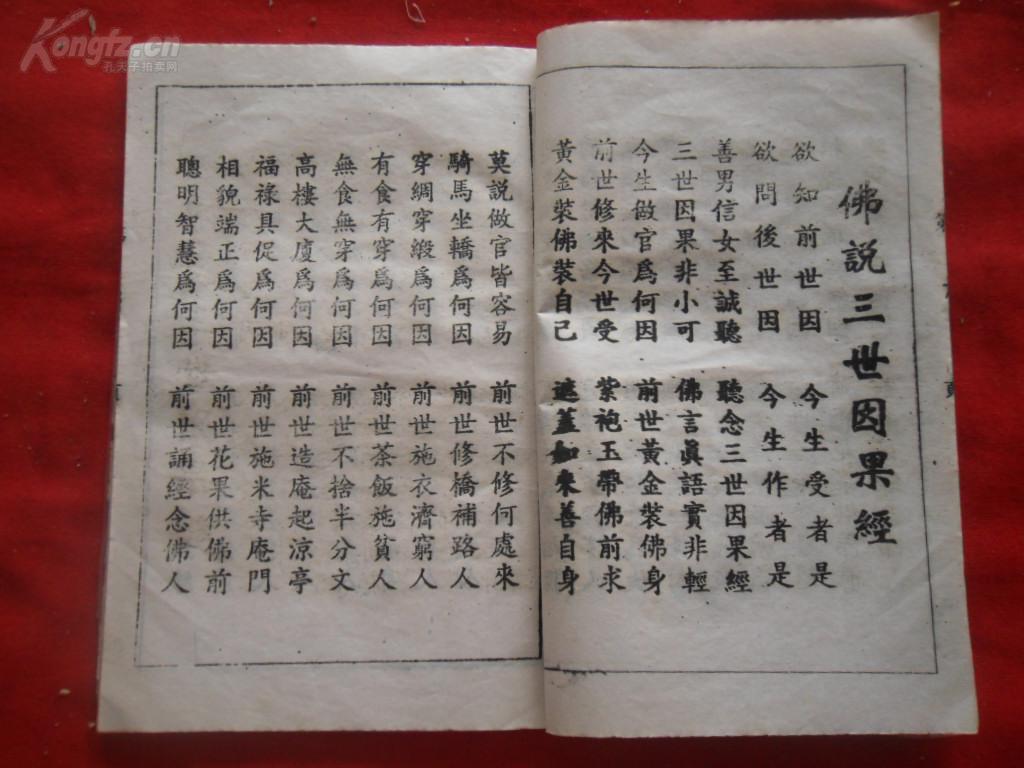 Kongfz.cn
孔夫子拍卖网
佛説三世因果經
欲知前世因 今生受者是
欲問後世因 今生作者是
善男信女至誠聽 聽念三世因果經
三世因果非小可 佛言眞語實非輕
今生做官爲何因 前世黃金裝佛身
前世修來今世受 紫袍玉帶佛前求
黃金裝佛裝自己 遮蓋如來善自身
莫説做官皆容易 前世不修何處來
騎馬坐轎爲何因 前世修橋補路人
穿綢穿緞爲何因 前世施衣濟窮人
有食有穿爲何因 前世茶飯施貧人
無食無穿爲何因 前世不捨半分文
高樓大廈爲何因 前世造庵起涼亭
福禄具促爲何因 前世施米寺庵門
相貌端正爲何因 前世花果供佛前
聰明智慧爲何因 前世誦經念佛人